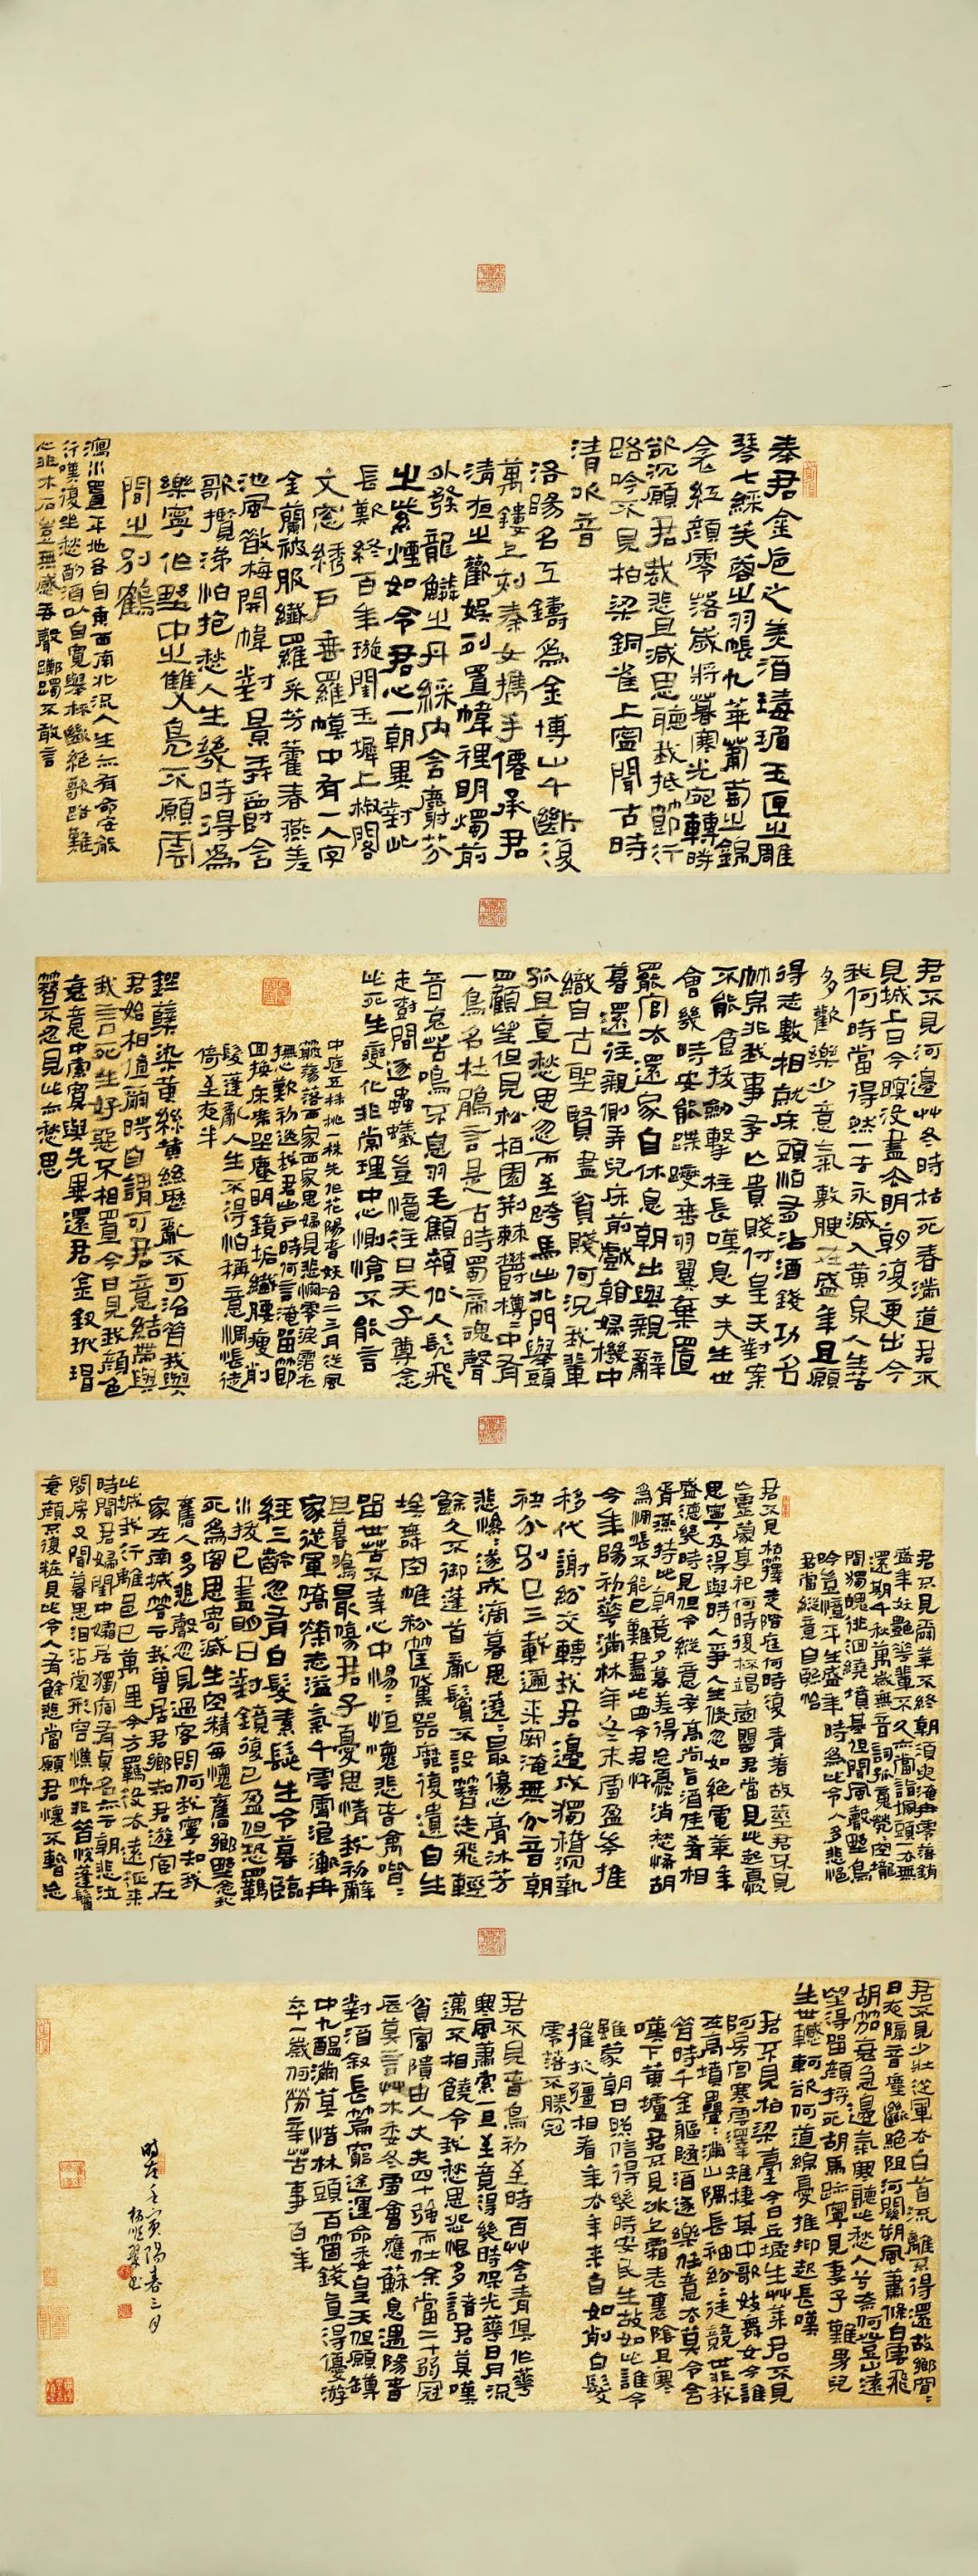 奉君金卮之美酒瑇瑁玉匣之雕
琴七綵芙蓉之羽帳九華蒲萄之錦
衾红顏零落歲將暮寒光宛轉時
欲沉願君裁悲且減思聽我抵節行
路吟不見柏梁銅雀上寧聞古時
清吹音
洛陽名工鑄爲金博山千斲復
萬鏤上刻秦女攜手僊承君
清夜之歡娛列置幃裡明燭前
外發龍鱗之丹綵內含麝芬
之紫煙如今君心一朝異對此
長歎終百年璇閨玉墀上椒閣
文窗綉戶垂羅幙中有一人字
金蘭被服纖羅采芳藿春燕差
池風散梅開幃對景弄禽爵含
歌攬涕恒抱愁人生幾時得爲
樂寧作野中之雙凫不願雲
間之别鶴
瀉水置平地各自東西南北流人生亦有命安能
行嘆復坐愁酌酒以自寬舉杯斷絕歌路難
心非木石豈無感吞聲躑躅不敢言
君不見河邊艸冬時枯死春滿道君不
見城上日今暝没盡去明朝復更出今
我何時當得然一去永滅入黃泉人生苦
多歡樂少意氣敷腴在盛年且願
得志數相就床頭恒有沾酒錢功名
竹帛非我事存亡貴賤付皇天對案
不能食拔劍擊柱長嘆息丈夫生世
會幾時安能蹀躞垂羽翼棄置
罷官去還家自休息朝出與親辭
暮還在親側弄兒床前戲看婦機中
織自古聖賢盡貧賤何況我輩
孤且直愁思忽而至跨馬出北門舉頭
四顧望但見松柏園荆棘鬱樽:中有
一鳥名杜鵑言是古時蜀帝魂聲
音哀苦鳴不息羽毛顦顇似人髡飛
走樹間逐蟲蟻豈憶往日天子尊念
此死生變化非常理中心惻愴不能言
中庭五株桃一株先作花陽春妖冶二三月從風
簸蕩落西家西家思婦見悲惋零淚霑衣
撫心歎初送我君出戶時何言淹留節
回換床席生塵明鏡垢纖腰瘦削
髮蓬亂人生不得恒稱意惆悵徙
倚至夜半
剉蘖染黃絲黃絲歷亂不可治昔我與
君始相值爾時自謂可君意結帶與
我言死生好惡不相置今日見我顏色
衰意中索寞與先異還君金釵玳瑁
簪不忍見此益愁思
君不見蕣華不終朝須臾淹冉零落銷
盛年妖艷浮華輩不久亦當詣塚頭一去無
還期千秋萬歲無音詞孤魂煢煢空隴
間獨魄徘徊繞墳基但聞風聲野鳥
吟豈憶平生盛年時爲此令人多悲悒
君當縱意自熙怡
君不見枯籜走階庭何時復青著故莖君不見
亡靈蒙享祀何時復杯竭壺罌君當見此起憂
思寧及得與時人爭人生倏忽如絕電華年
盛德幾時見但令縱意存高尚旨酒佳肴相
胥燕持此朝竟夕暮差得亡憂消愁怖胡
爲惆悵不能已難盡此曲令君忤
今年陽初華滿林年冬末雪盈岑推
移代謝紛交轉我君邊戍獨稽沉執
袂分别已三載邇來寂淹無分音朝
悲慘:遂成滴暮思遶:最傷心膏沐芳
餘久不御蓬首亂鬢不設簪徒飛輕
埃舞空帷粉筐黛器靡復遺自生
留世苦不幸心中惕:恒懷悲春禽喈:
旦暮鳴最傷君子憂思情我初辭
家從軍僑榮志溢氣干雲霄流浪漸冉
經三齡忽有白髮素髭生今暮臨
水拔已盡明日對鏡復已盈但恐羈
死爲鬼客思寄滅生空精每懷舊鄉野念我
舊人多悲聲忽見過客問何我寧知我
家在南城答云我曾居君鄉知君遊宦在
此城我行離邑已萬里今方羈役去遠征來
時聞君婦閨中孀居獨宿有貞名亦云朝悲泣
閒房又聞暮思淚沾裳形容憔悴非昔悦蓬鬢
衰顏不復粧見此令人有餘悲當願君懷不暫忘
君不見少壯從軍去白首流離不得還故鄉窅:
日夜隔音塵斷絕阻河關朔風蕭條白雲飛
胡笳哀急邊氣寒聽此愁人兮奈何登山遠
望得留顏將死胡馬跡寧見妻子難男兒
生世轗軻欲何道綿憂摧抑起長嘆
君不見柏梁臺今日丘墟生艸萊君不見
阿房宮寒雲澤雉棲其中歌妓舞女今誰
在高墳壘:滿山隅長袖紛:徒競世非我
昔時千金軀隨酒逐樂任意去莫令含
嘆下黃壚君不見冰上霜表裏陰且寒
雖蒙朝日照信得幾時安民生故如此誰令
摧折彊相看年去年來自如削白髮
零落不勝冠
君不見春鳥初至時百艸含青俱作華
寒風蕭索一旦至竟得幾時保光華日月流
邁不相饒令我愁思怨恨多諸君莫嘆
貧富貴由人丈夫四十強而仕余當二十弱冠
辰莫言艸木委冬雪會應蘇息遇陽春
對酒敘長篇窮途運命委皇天但願樽
中九醞滿莫惜床頭百箇錢直得優游
卒一歲何勞辛苦事百年
時在壬寅陽春三月